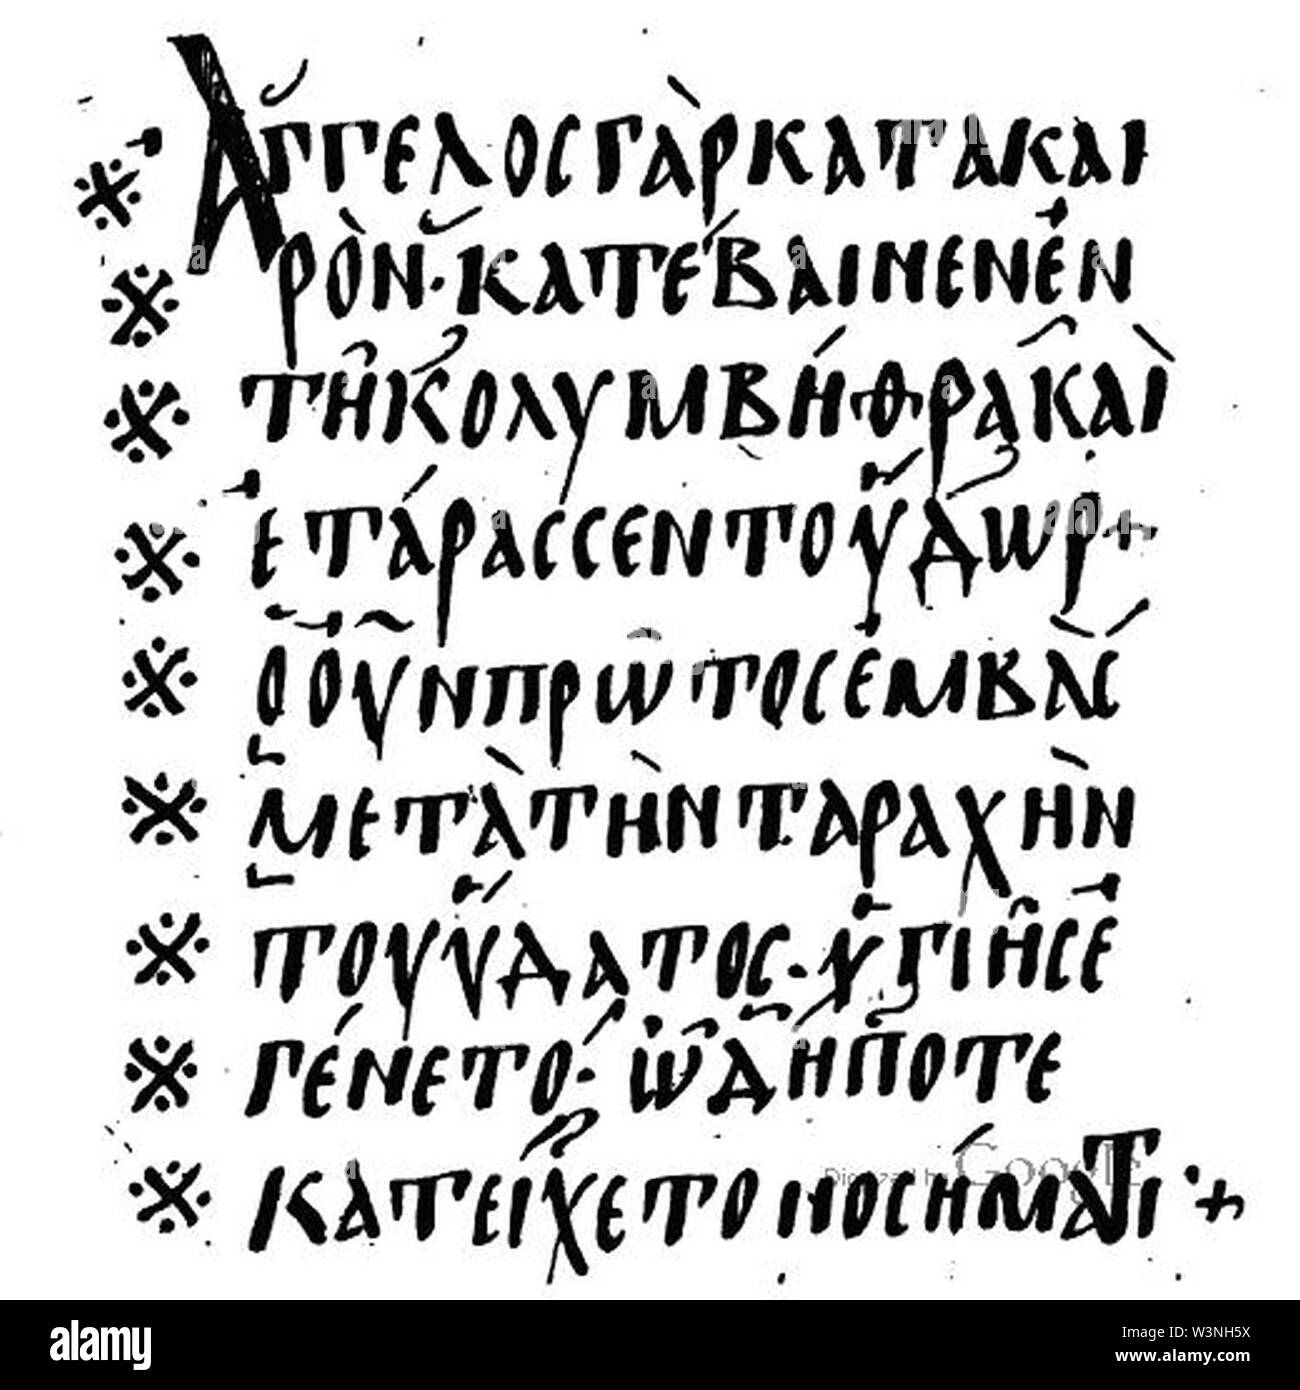 ※ Ἄγγελος γὰρ κατὰ και
※ ρὸν· κατέβαινεν ἐν
※ τῆ κολυμβήθρα καὶ
※ ἐτάρασσεν τὸ ὕδωρ +
※ ὁ οὖν πρῶτος ἐμβὰς
※ μετὰ τὴν ταραχὴν
※ τοῦ ὕδατος· ὑγιῆς ἐ
※ γένετο· ὧ δήποτε
※ κατείχετο νοσήματι +
Digitized by Google
alamy
Image ID: W3NH5X
www.alamy.com